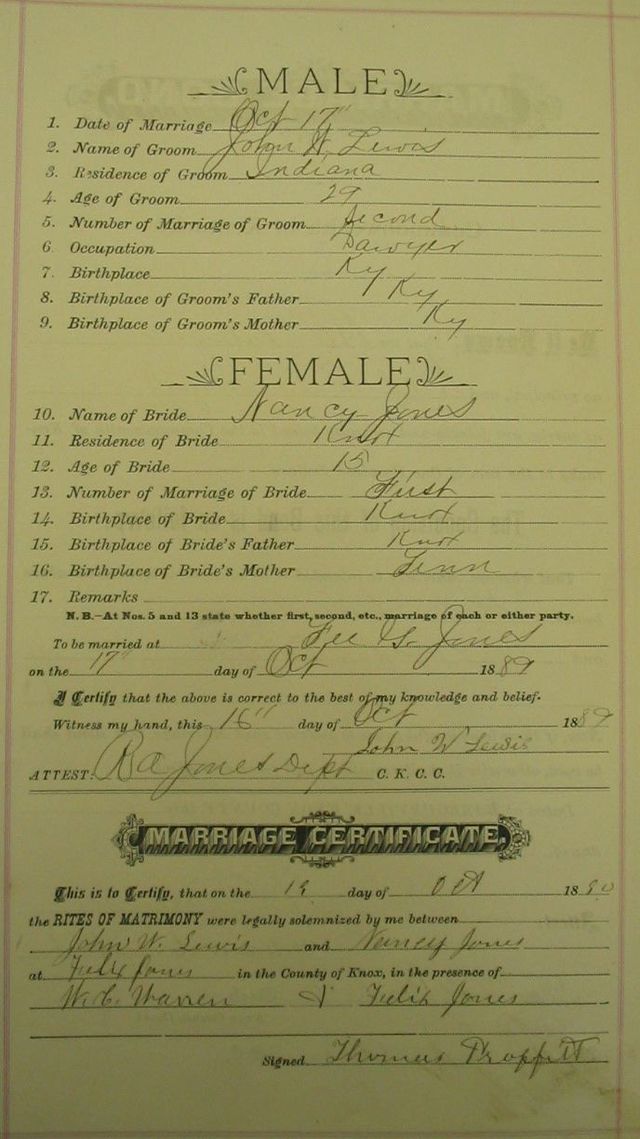 MALE
1. Date of Marriage Oct 17"
2. Name of Groom John W. Lewis
3. Residence of Groom Indiana
4. Age of Groom 29
5. Number of Marriage of Groom Second
6. Occupation Lawyer
7. Birthplace Ky
8. Birthplace of Groom's Father Ky
9. Birthplace of Groom's Mother Ky
FEMALE
10. Name of Bride Nancy Jones
11. Residence of Bride Knox
12. Age of Bride 15
13. Number of Marriage of Bride First
14. Birthplace of Bride Knox
15. Birthplace of Bride's Father Knox
16. Birthplace of Bride's Mother Tenn
17. Remarks
N. B.—At Nos. 5 and 13 state whether first, second, etc., marriage of each or either party.
To be married at Jones
on the 17" day of Oct 1889
I Certify that the above is correct to the best of my knowledge and belief.
Witness my hand, this 16" day of Oct 1889
John W Lewis
ATTEST: Jones Dept C. K. C. C.
MARRIAGE CERTIFICATE.
This is to Certify, that on the day of Oct 18
the RITES OF MATRIMONY were legally solemnized by me between
John W. Lewis and Nancy Jones
at Felix Jones in the County of Knox, in the presence of
W. C. Warren & Felix Jones
Signed Thomas Proffitt